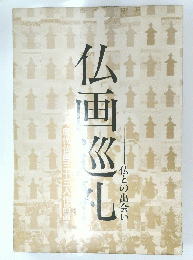 仏画巡礼
——仏との出会い